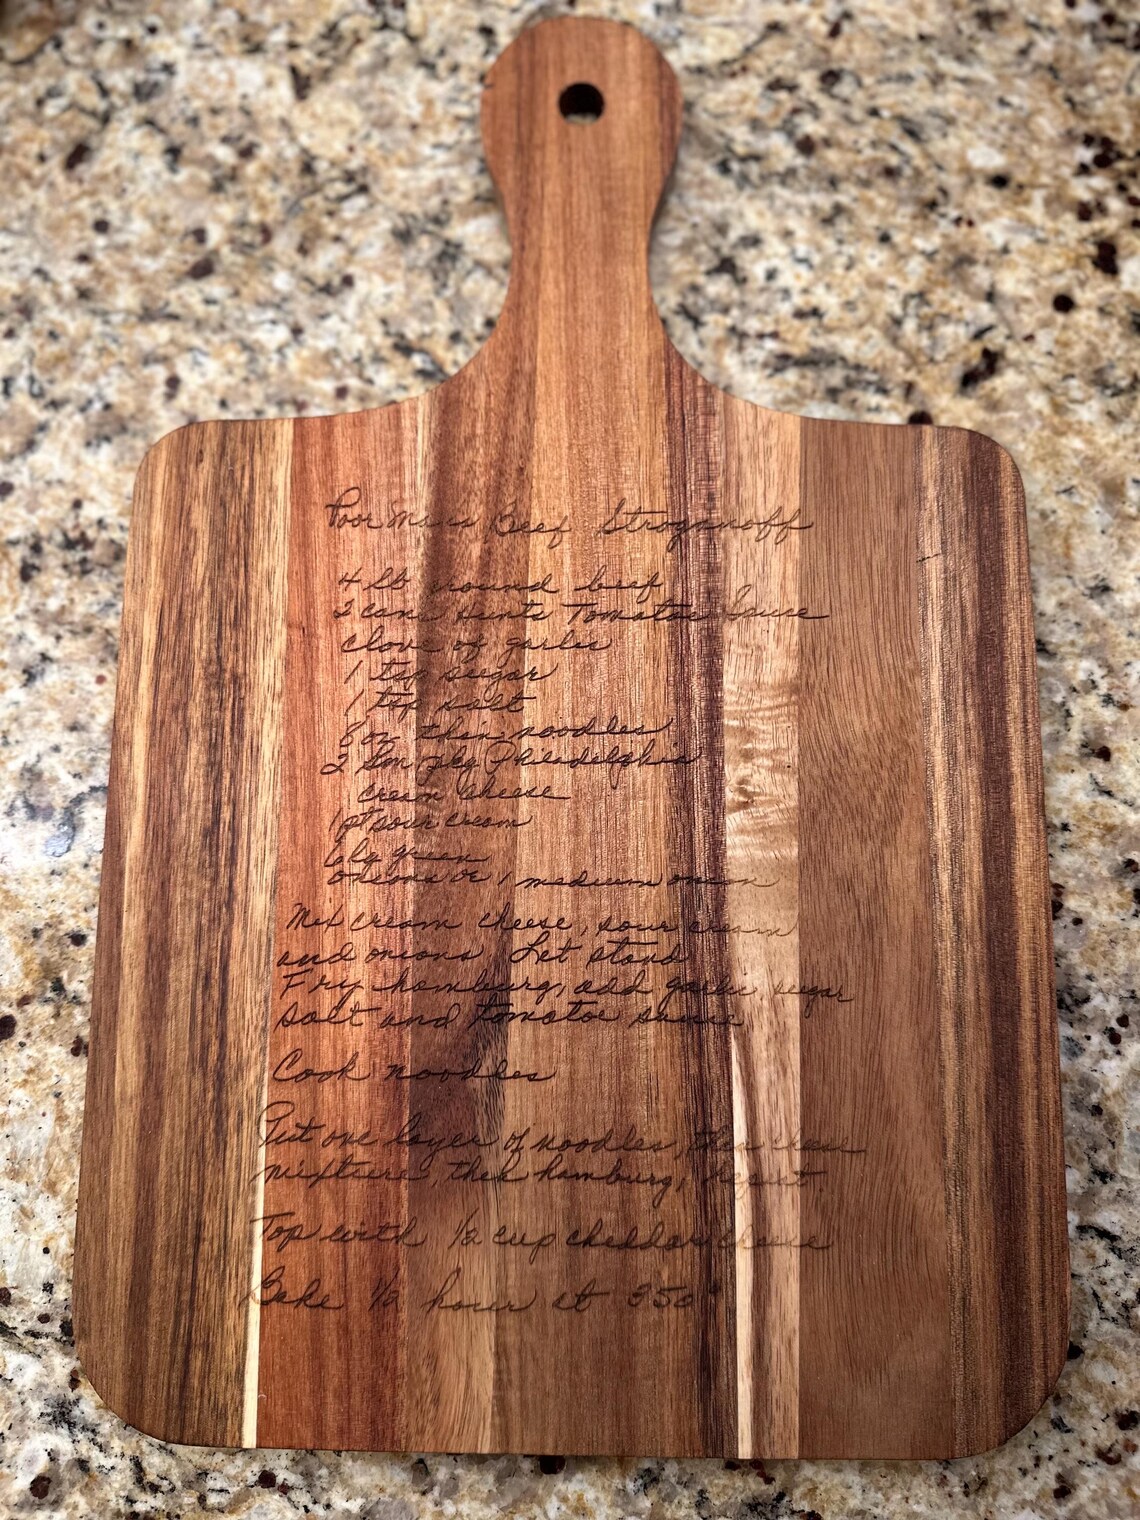 Poor Man's Beef Stroganoff
4 lb round beef
2 cans Tomatoe Sauce
clove of garlic
1 tsp sugar
1 tsp salt
8 oz thin noodles
2 Sm pkg Philadelphia
cream cheese
1 pt sour cream
6 lg green
onions or 1 medium onion
Mix cream cheese, sour cream
and onions Let stand
Fry hamburg, add garlic, sugar
salt and tomatoe sauce
Cook noodles
Put one layer of noodles, then cheese
mixture, then hamburg, repeat
Top with 1/2 cup cheddar cheese
Bake 1/2 hour at 350°